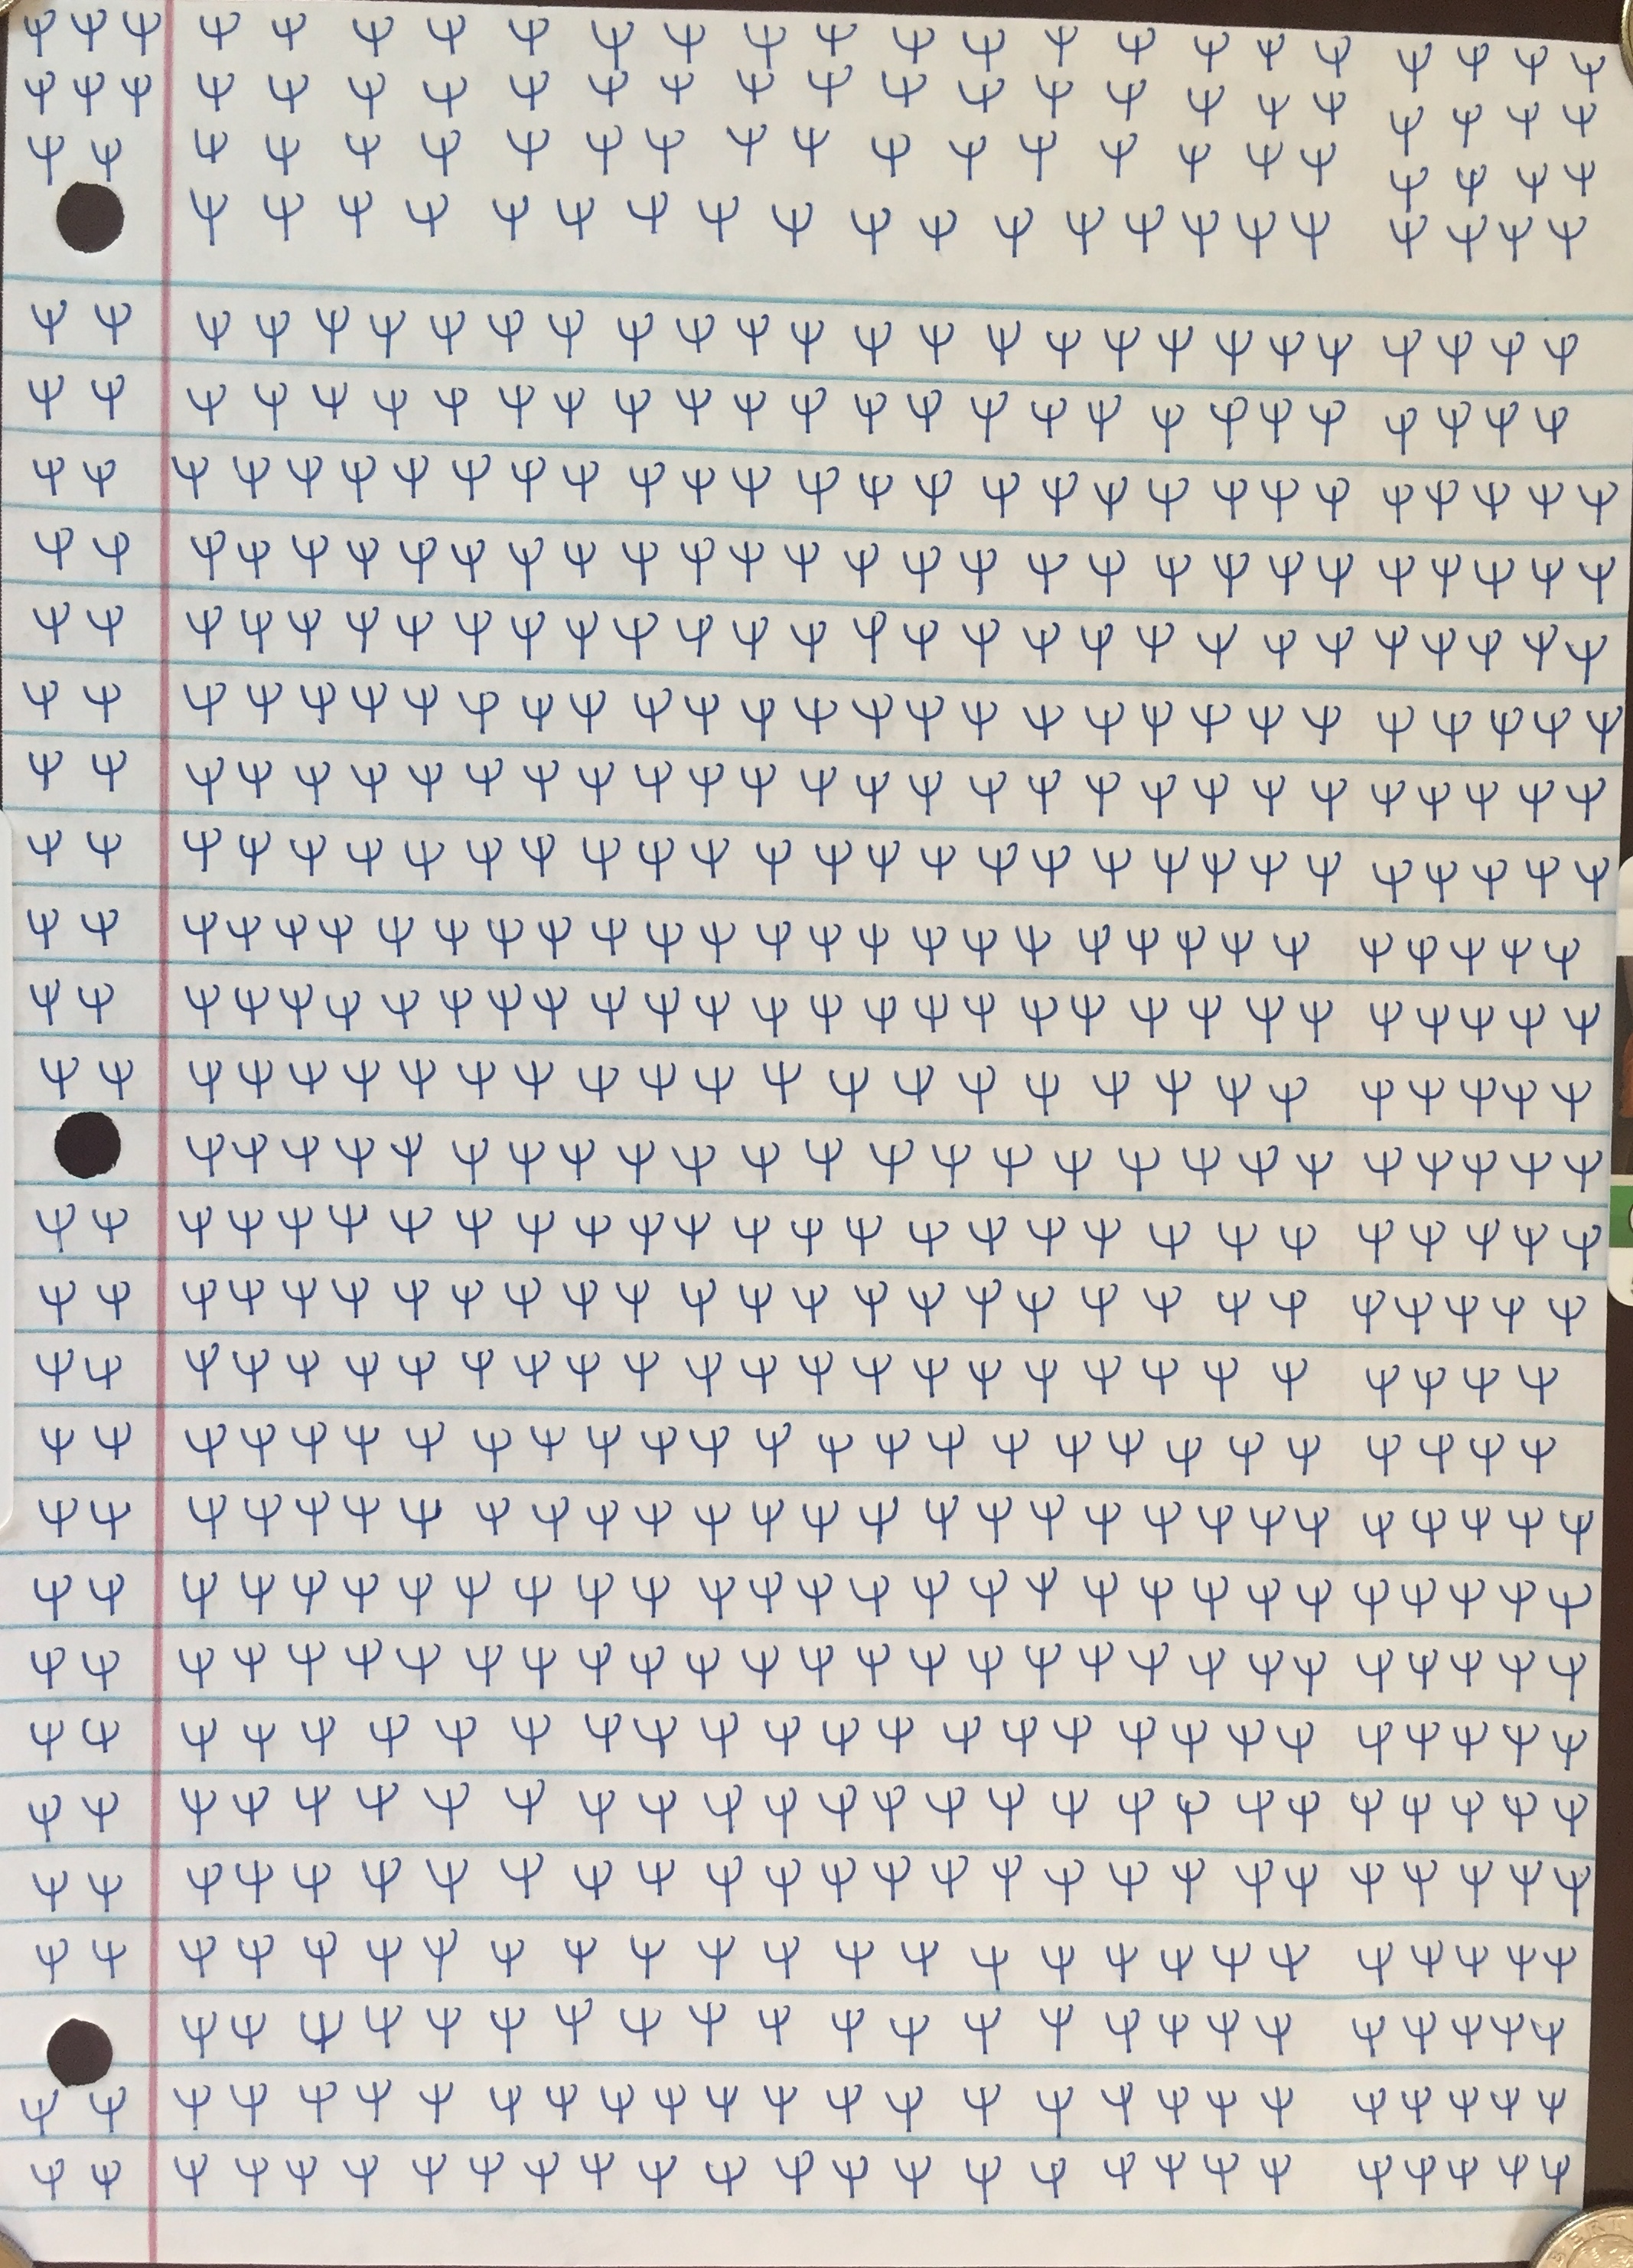 ψ ψ ψ ψ ψ ψ ψ ψ ψ ψ ψ ψ ψ ψ ψ ψ ψ ψ ψ ψ ψ ψ ψ
ψ ψ ψ ψ ψ ψ ψ ψ ψ ψ ψ ψ ψ ψ ψ ψ ψ ψ ψ ψ ψ ψ ψ
ψ ψ ψ ψ ψ ψ ψ ψ ψ ψ ψ ψ ψ ψ ψ ψ ψ ψ ψ ψ ψ ψ
ψ ψ ψ ψ ψ ψ ψ ψ ψ ψ ψ ψ ψ ψ ψ ψ ψ ψ ψ ψ ψ
ψ ψ ψ ψ ψ ψ ψ ψ ψ ψ ψ ψ ψ ψ ψ ψ ψ ψ ψ ψ ψ ψ ψ ψ ψ ψ
ψ ψ ψ ψ ψ ψ ψ ψ ψ ψ ψ ψ ψ ψ ψ ψ ψ ψ ψ ψ ψ ψ ψ ψ ψ ψ
ψ ψ ψ ψ ψ ψ ψ ψ ψ ψ ψ ψ ψ ψ ψ ψ ψ ψ ψ ψ ψ ψ ψ ψ ψ ψ ψ ψ
ψ ψ ψ ψ ψ ψ ψ ψ ψ ψ ψ ψ ψ ψ ψ ψ ψ ψ ψ ψ ψ ψ ψ ψ ψ ψ ψ ψ
ψ ψ ψ ψ ψ ψ ψ ψ ψ ψ ψ ψ ψ ψ ψ ψ ψ ψ ψ ψ ψ ψ ψ ψ ψ ψ ψ ψ
ψ ψ ψ ψ ψ ψ ψ ψ ψ ψ ψ ψ ψ ψ ψ ψ ψ ψ ψ ψ ψ ψ ψ ψ ψ ψ ψ ψ
ψ ψ ψ ψ ψ ψ ψ ψ ψ ψ ψ ψ ψ ψ ψ ψ ψ ψ ψ ψ ψ ψ ψ ψ ψ ψ ψ ψ
ψ ψ ψ ψ ψ ψ ψ ψ ψ ψ ψ ψ ψ ψ ψ ψ ψ ψ ψ ψ ψ ψ ψ ψ ψ ψ ψ ψ
ψ ψ ψ ψ ψ ψ ψ ψ ψ ψ ψ ψ ψ ψ ψ ψ ψ ψ ψ ψ ψ ψ ψ ψ ψ ψ ψ ψ ψ
ψ ψ ψ ψ ψ ψ ψ ψ ψ ψ ψ ψ ψ ψ ψ ψ ψ ψ ψ ψ ψ ψ ψ ψ ψ ψ ψ ψ ψ
ψ ψ ψ ψ ψ ψ ψ ψ ψ ψ ψ ψ ψ ψ ψ ψ ψ ψ ψ ψ ψ ψ ψ ψ ψ ψ
ψ ψ ψ ψ ψ ψ ψ ψ ψ ψ ψ ψ ψ ψ ψ ψ ψ ψ ψ ψ ψ ψ ψ ψ ψ
ψ ψ ψ ψ ψ ψ ψ ψ ψ ψ ψ ψ ψ ψ ψ ψ ψ ψ ψ ψ ψ ψ ψ ψ ψ ψ ψ
ψ ψ ψ ψ ψ ψ ψ ψ ψ ψ ψ ψ ψ ψ ψ ψ ψ ψ ψ ψ ψ ψ ψ ψ ψ ψ ψ
ψ ψ ψ ψ ψ ψ ψ ψ ψ ψ ψ ψ ψ ψ ψ ψ ψ ψ ψ ψ ψ ψ ψ ψ ψ ψ
ψ ψ ψ ψ ψ ψ ψ ψ ψ ψ ψ ψ ψ ψ ψ ψ ψ ψ ψ ψ ψ ψ ψ ψ ψ ψ
ψ ψ ψ ψ ψ ψ ψ ψ ψ ψ ψ ψ ψ ψ ψ ψ ψ ψ ψ ψ ψ ψ ψ ψ ψ ψ ψ ψ
ψ ψ ψ ψ ψ ψ ψ ψ ψ ψ ψ ψ ψ ψ ψ ψ ψ ψ ψ ψ ψ ψ ψ ψ ψ ψ ψ ψ
ψ ψ ψ ψ ψ ψ ψ ψ ψ ψ ψ ψ ψ ψ ψ ψ ψ ψ ψ ψ ψ ψ ψ ψ ψ ψ ψ ψ
ψ ψ ψ ψ ψ ψ ψ ψ ψ ψ ψ ψ ψ ψ ψ ψ ψ ψ ψ ψ ψ ψ ψ ψ ψ ψ
ψ ψ ψ ψ ψ ψ ψ ψ ψ ψ ψ ψ ψ ψ ψ ψ ψ ψ ψ ψ ψ ψ ψ ψ ψ ψ
ψ ψ ψ ψ ψ ψ ψ ψ ψ ψ ψ ψ ψ ψ ψ ψ ψ ψ ψ ψ ψ ψ ψ ψ ψ ψ
ψ ψ ψ ψ ψ ψ ψ ψ ψ ψ ψ ψ ψ ψ ψ ψ ψ ψ ψ ψ ψ ψ ψ ψ ψ
ψ ψ ψ ψ ψ ψ ψ ψ ψ ψ ψ ψ ψ ψ ψ ψ ψ ψ ψ ψ ψ ψ ψ
ψ ψ ψ ψ ψ ψ ψ ψ ψ ψ ψ ψ ψ ψ ψ ψ ψ ψ ψ ψ ψ ψ ψ ψ ψ ψ
ψ ψ ψ ψ ψ ψ ψ ψ ψ ψ ψ ψ ψ ψ ψ ψ ψ ψ ψ ψ ψ ψ ψ ψ ψ ψ